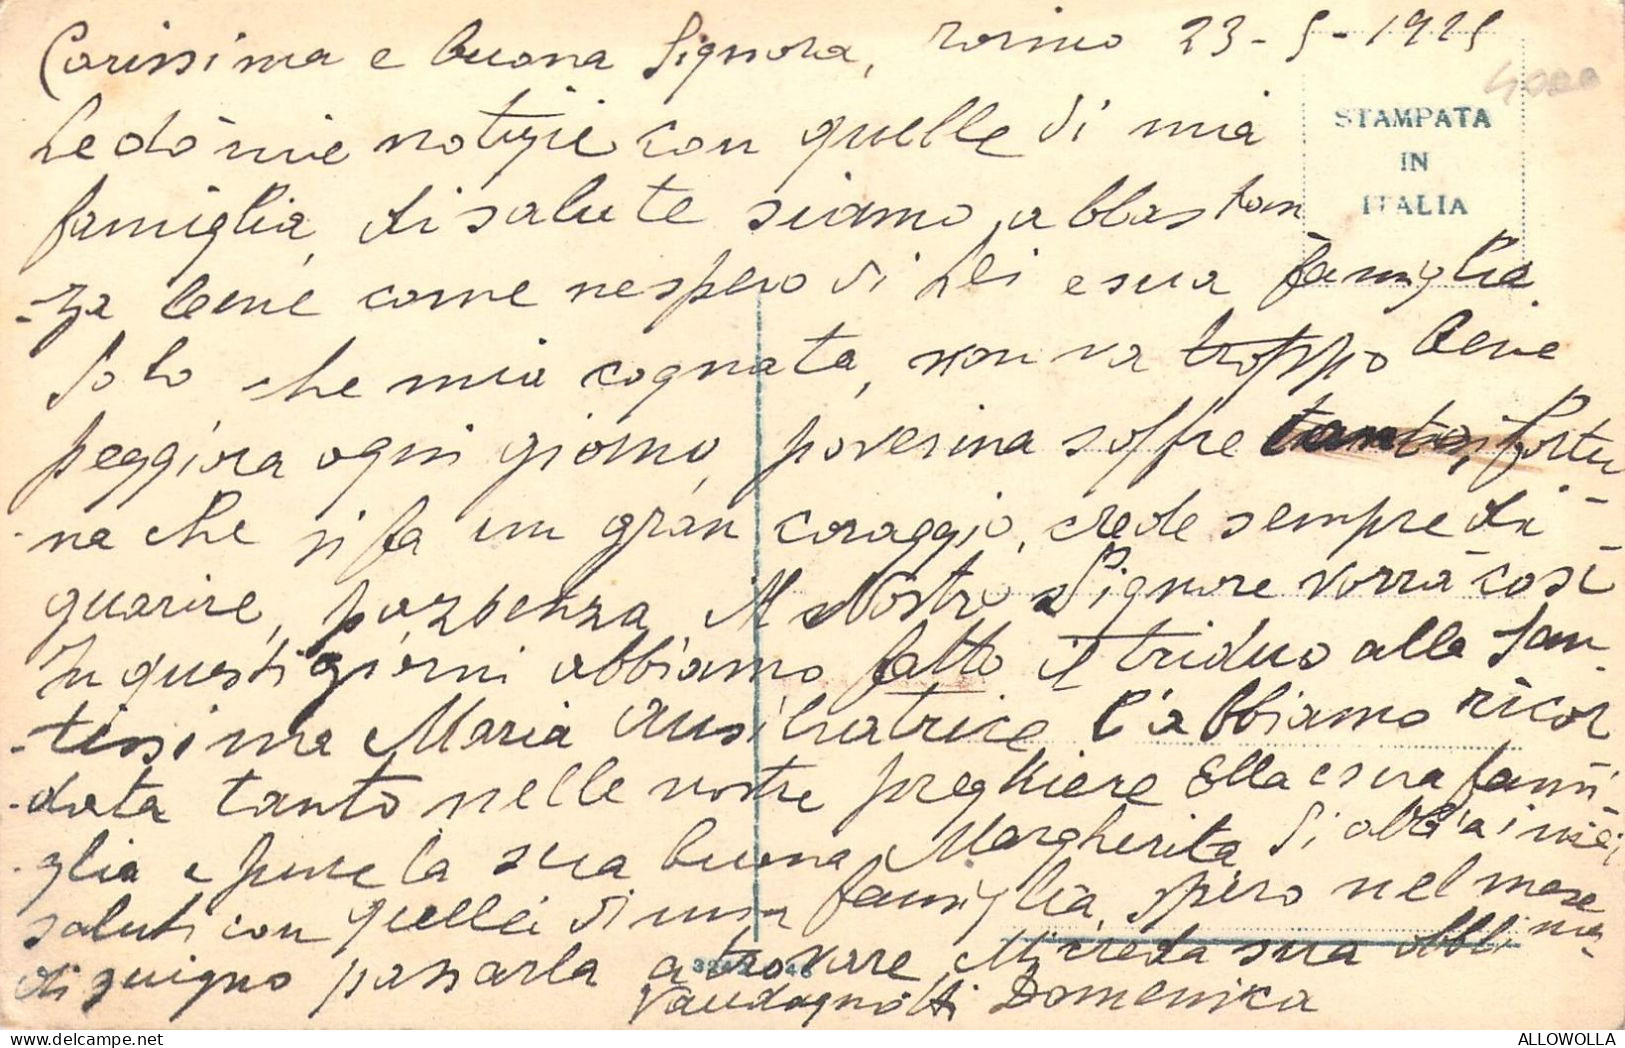 Carissima e buona Signora, Torino 23-5-1925
Le dò mie notizie con quelle di mia
famiglia, di salute siamo abbastan
-za bene come ne spero di Lei e sua famiglia.
Solo che mia cognata, non va troppo bene
peggiora ogni giorno, poverina soffre tanto, fortu
na che si fa un gran coraggio, crede sempre di
guarire, pazienza il Nostro Signore vorrà così
In questi giorni abbiamo fatto il triduo alla San-
-tissima Maria Ausiliatrice l'abbiamo ricor
-data tanto nelle nostre preghiere Ella e sua fami-
-glia e pure la sua buona Margherita Si abbia i miei
saluti con quelli di mia famiglia, spero nel mese
di guigno passarla a trovare, Mi creda sua obbl ma
Domenica
STAMPATA
IN
ITALIA
ALLOWOLLA